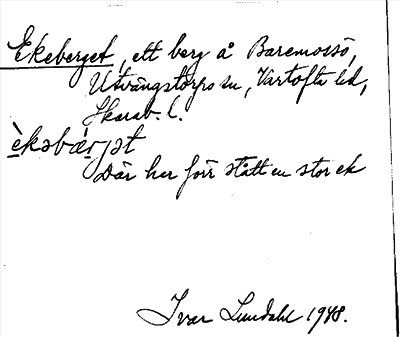 Ekeberget, ett berg å Baremossö,
Utvängstorps sn, Vartofta hd,
Skarab. l.
èkəbæ̀rjət
Där har förr stått en stor ek
Ivar Lundahl 1948.